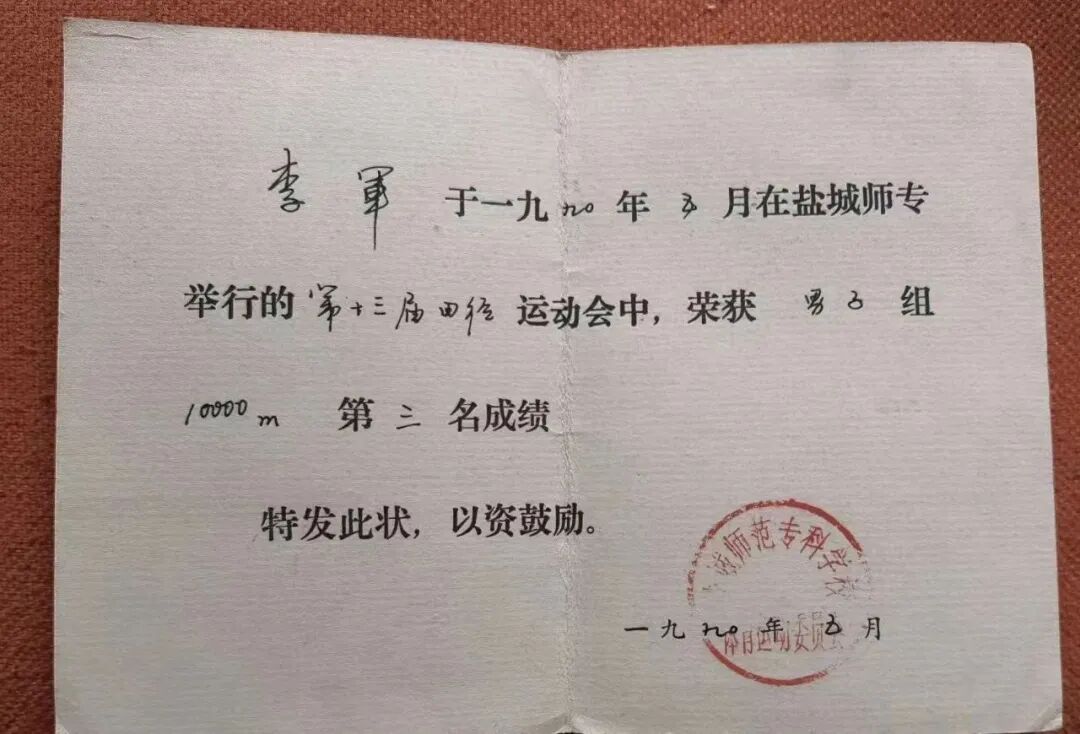 李軍 于一九九〇年 五 月在盐城师专
举行的 第十三届田径 运动会中，荣获 男子 组
10000m 第 三 名成绩
特发此状，以资鼓励。
城师范专科学校
体育运动委员会
一九九〇年 五 月